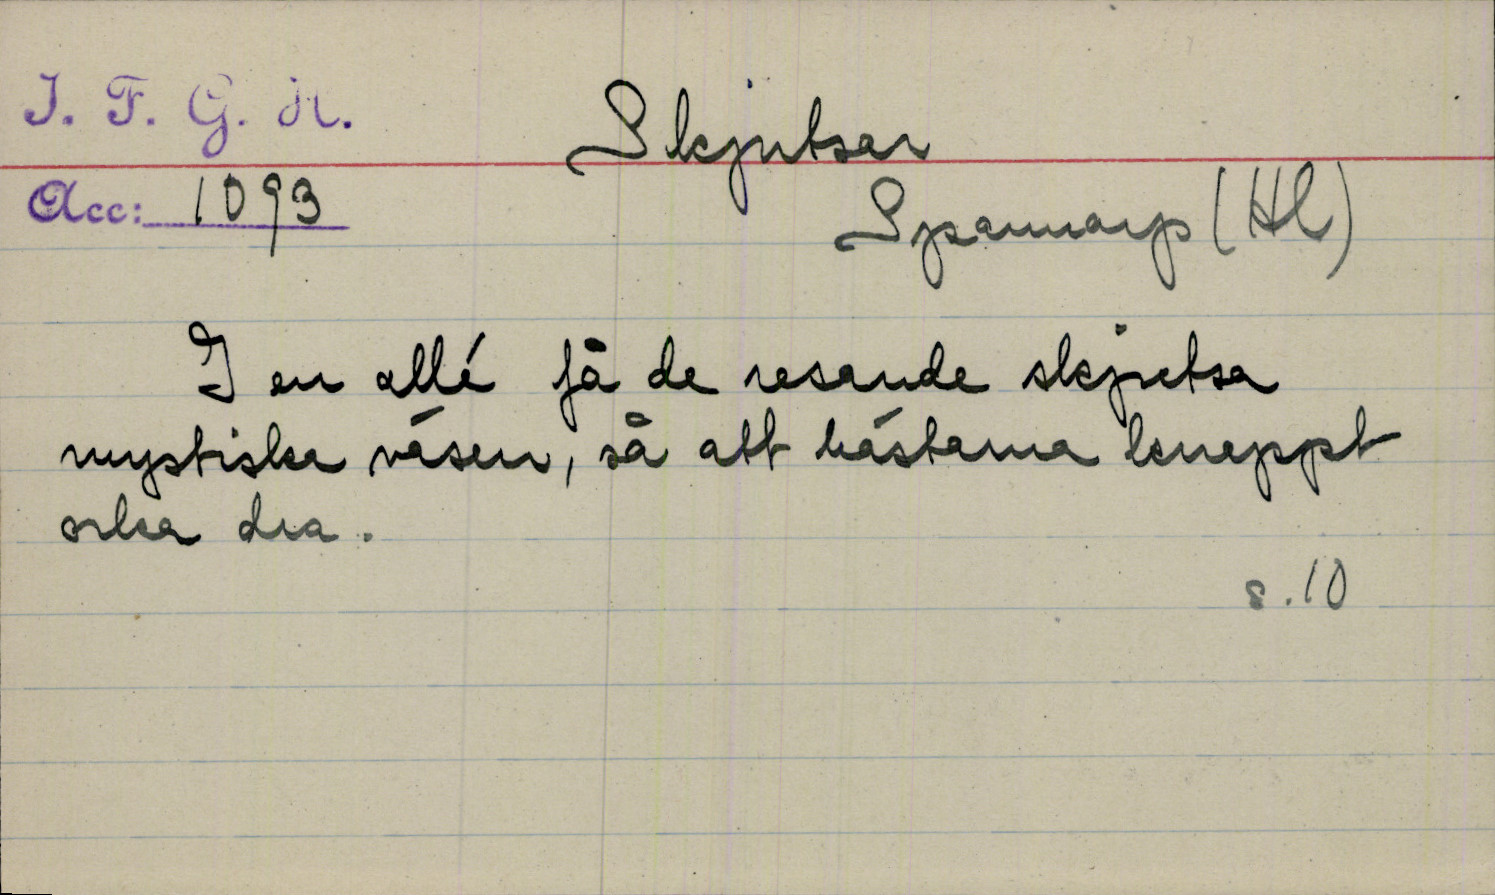 I. F. G. H.
Skjutsar
Acc: 1093
Spannarp (Hl)
I en allé få de resande skjutsa
mystiska väsen, så att hästarna knappt
orka dra.
s. 10